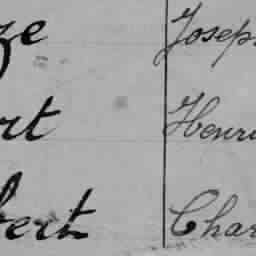 ze Joseph
rt Henri
bert Char